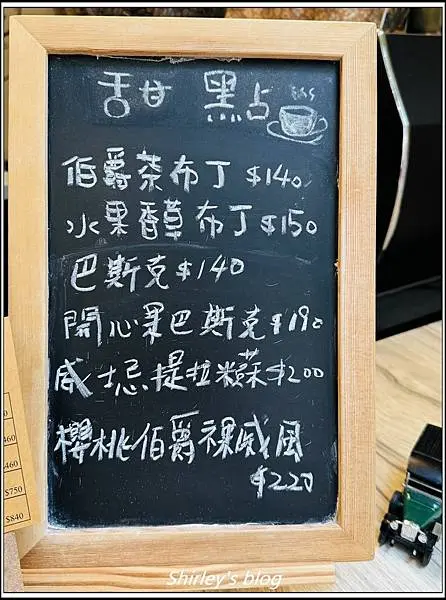 甜 點
伯爵茶布丁 $140
水果香草布丁 $150
巴斯克 $140
開心果巴斯克 $190
威士忌提拉米蘇 $200
櫻桃伯爵裸戚風
$220
460
460
$750
$840
Shirley's blog